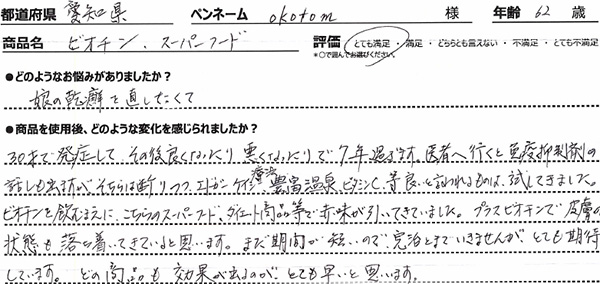 都道府県 愛知県 ペンネーム okotom 様 年齢 62 歳
商品名 ビオチン、スーパーフード 評価 とても満足・満足・どちらとも言えない・不満足・とても不満足
*○で囲んでお選びください。
●どのようなお悩みがありましたか?
娘の乾癬を直したくて
●商品を使用後、どのような変化を感じられましたか?
30才で発症して、その後良くなったり悪くなったりで7年過ぎます。医者へ行くと免疫抑制剤の
話しも出ますが、そちらは断りつつ、エドガーケイシー療法、豊富温泉、ビタミンC、等良いと言われるものは、試してきました。
ビオチンを飲むまえに、こちらのスーパーフード、ダイエット商品等で赤味が引いてきていました。プラスビオチンで皮膚の
状態も落ち着いてきていると思います。まだ期間が短いので、完治とまでいきませんが、とても期待
しています。どの商品も効果が出るのが、とても早いと思います。